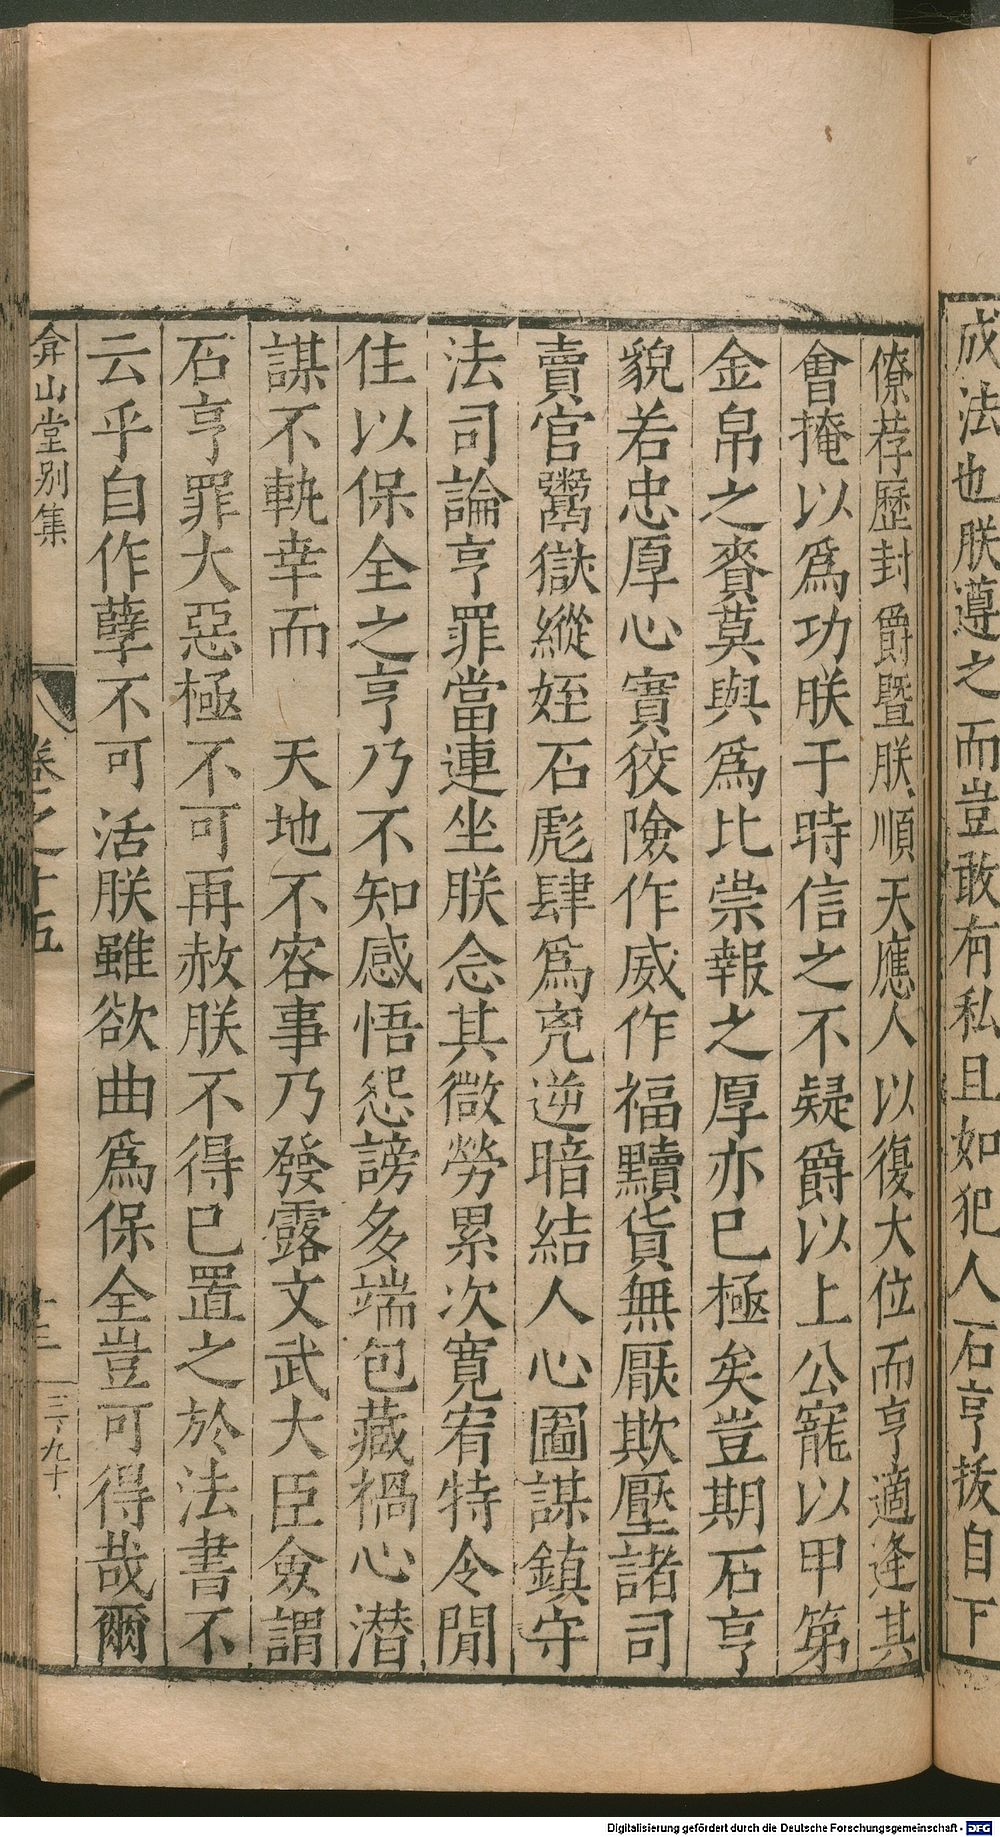 成法也朕遵之而豈敢有私且如犯人石亨拔自下
僚荐歷封爵暨朕順天應人以復大位而亨適逢其
會掩以爲功朕于時信之不疑爵以上公寵以甲第
金帛之賚莫與爲比崇報之厚亦已極矣豈期石亨
貌若忠厚心實狡險作威作福黷貨無厭欺壓諸司
賣官鬻獄縱姪石彪肆爲兇逆暗結人心圖謀鎮守
法司論亨罪當連坐朕念其微勞累次寛宥特令閒
住以保全之亨乃不知感悟怨謗多端包藏禍心潜
謀不軌幸而 天地不容事乃發露文武大臣僉謂
石亨罪大惡極不可再赦朕不得已置之於法書不
云乎自作孽不可活朕雖欲曲爲保全豈可得哉爾
弇山堂别集 卷之十五 十三 三丁九十
Digitalisierung gefördert durch die Deutsche Forschungsgemeinschaft - DFG